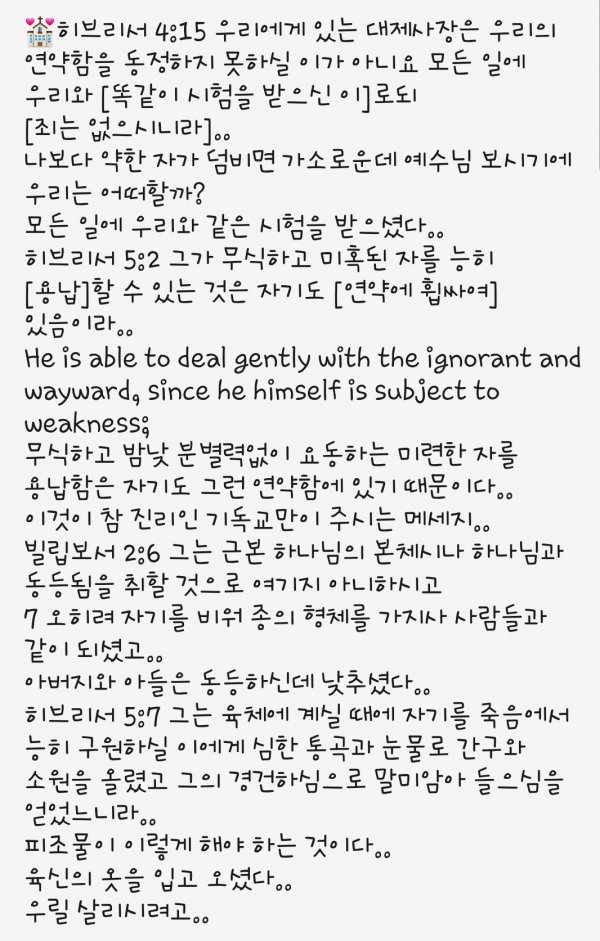 💒히브리서 4:15 우리에게 있는 대제사장은 우리의
연약함을 동정하지 못하실 이가 아니요 모든 일에
우리와 [똑같이 시험을 받으신 이]로되
[죄는 없으시니라]..
나보다 약한 자가 덤비면 가소로운데 예수님 보시기에
우리는 어떠할까?
모든 일에 우리와 같은 시험을 받으셨다..
히브리서 5:2 그가 무식하고 미혹된 자를 능히
[용납]할 수 있는 것은 자기도 [연약에 휩싸여]
있음이라..
He is able to deal gently with the ignorant and
wayward, since he himself is subject to
weakness;
무식하고 밤낮 분별력없이 요동하는 미련한 자를
용납함은 자기도 그런 연약함에 있기 때문이다..
이것이 참 진리인 기독교만이 주시는 메세지..
빌립보서 2:6 그는 근본 하나님의 본체시나 하나님과
동등됨을 취할 것으로 여기지 아니하시고
7 오히려 자기를 비워 종의 형체를 가지사 사람들과
같이 되셨고..
아버지와 아들은 동등하신데 낮추셨다..
히브리서 5:7 그는 육체에 계실 때에 자기를 죽음에서
능히 구원하실 이에게 심한 통곡과 눈물로 간구와
소원을 올렸고 그의 경건하심으로 말미암아 들으심을
얻었느니라..
피조물이 이렇게 해야 하는 것이다..
육신의 옷을 입고 오셨다..
우릴 살리시려고..